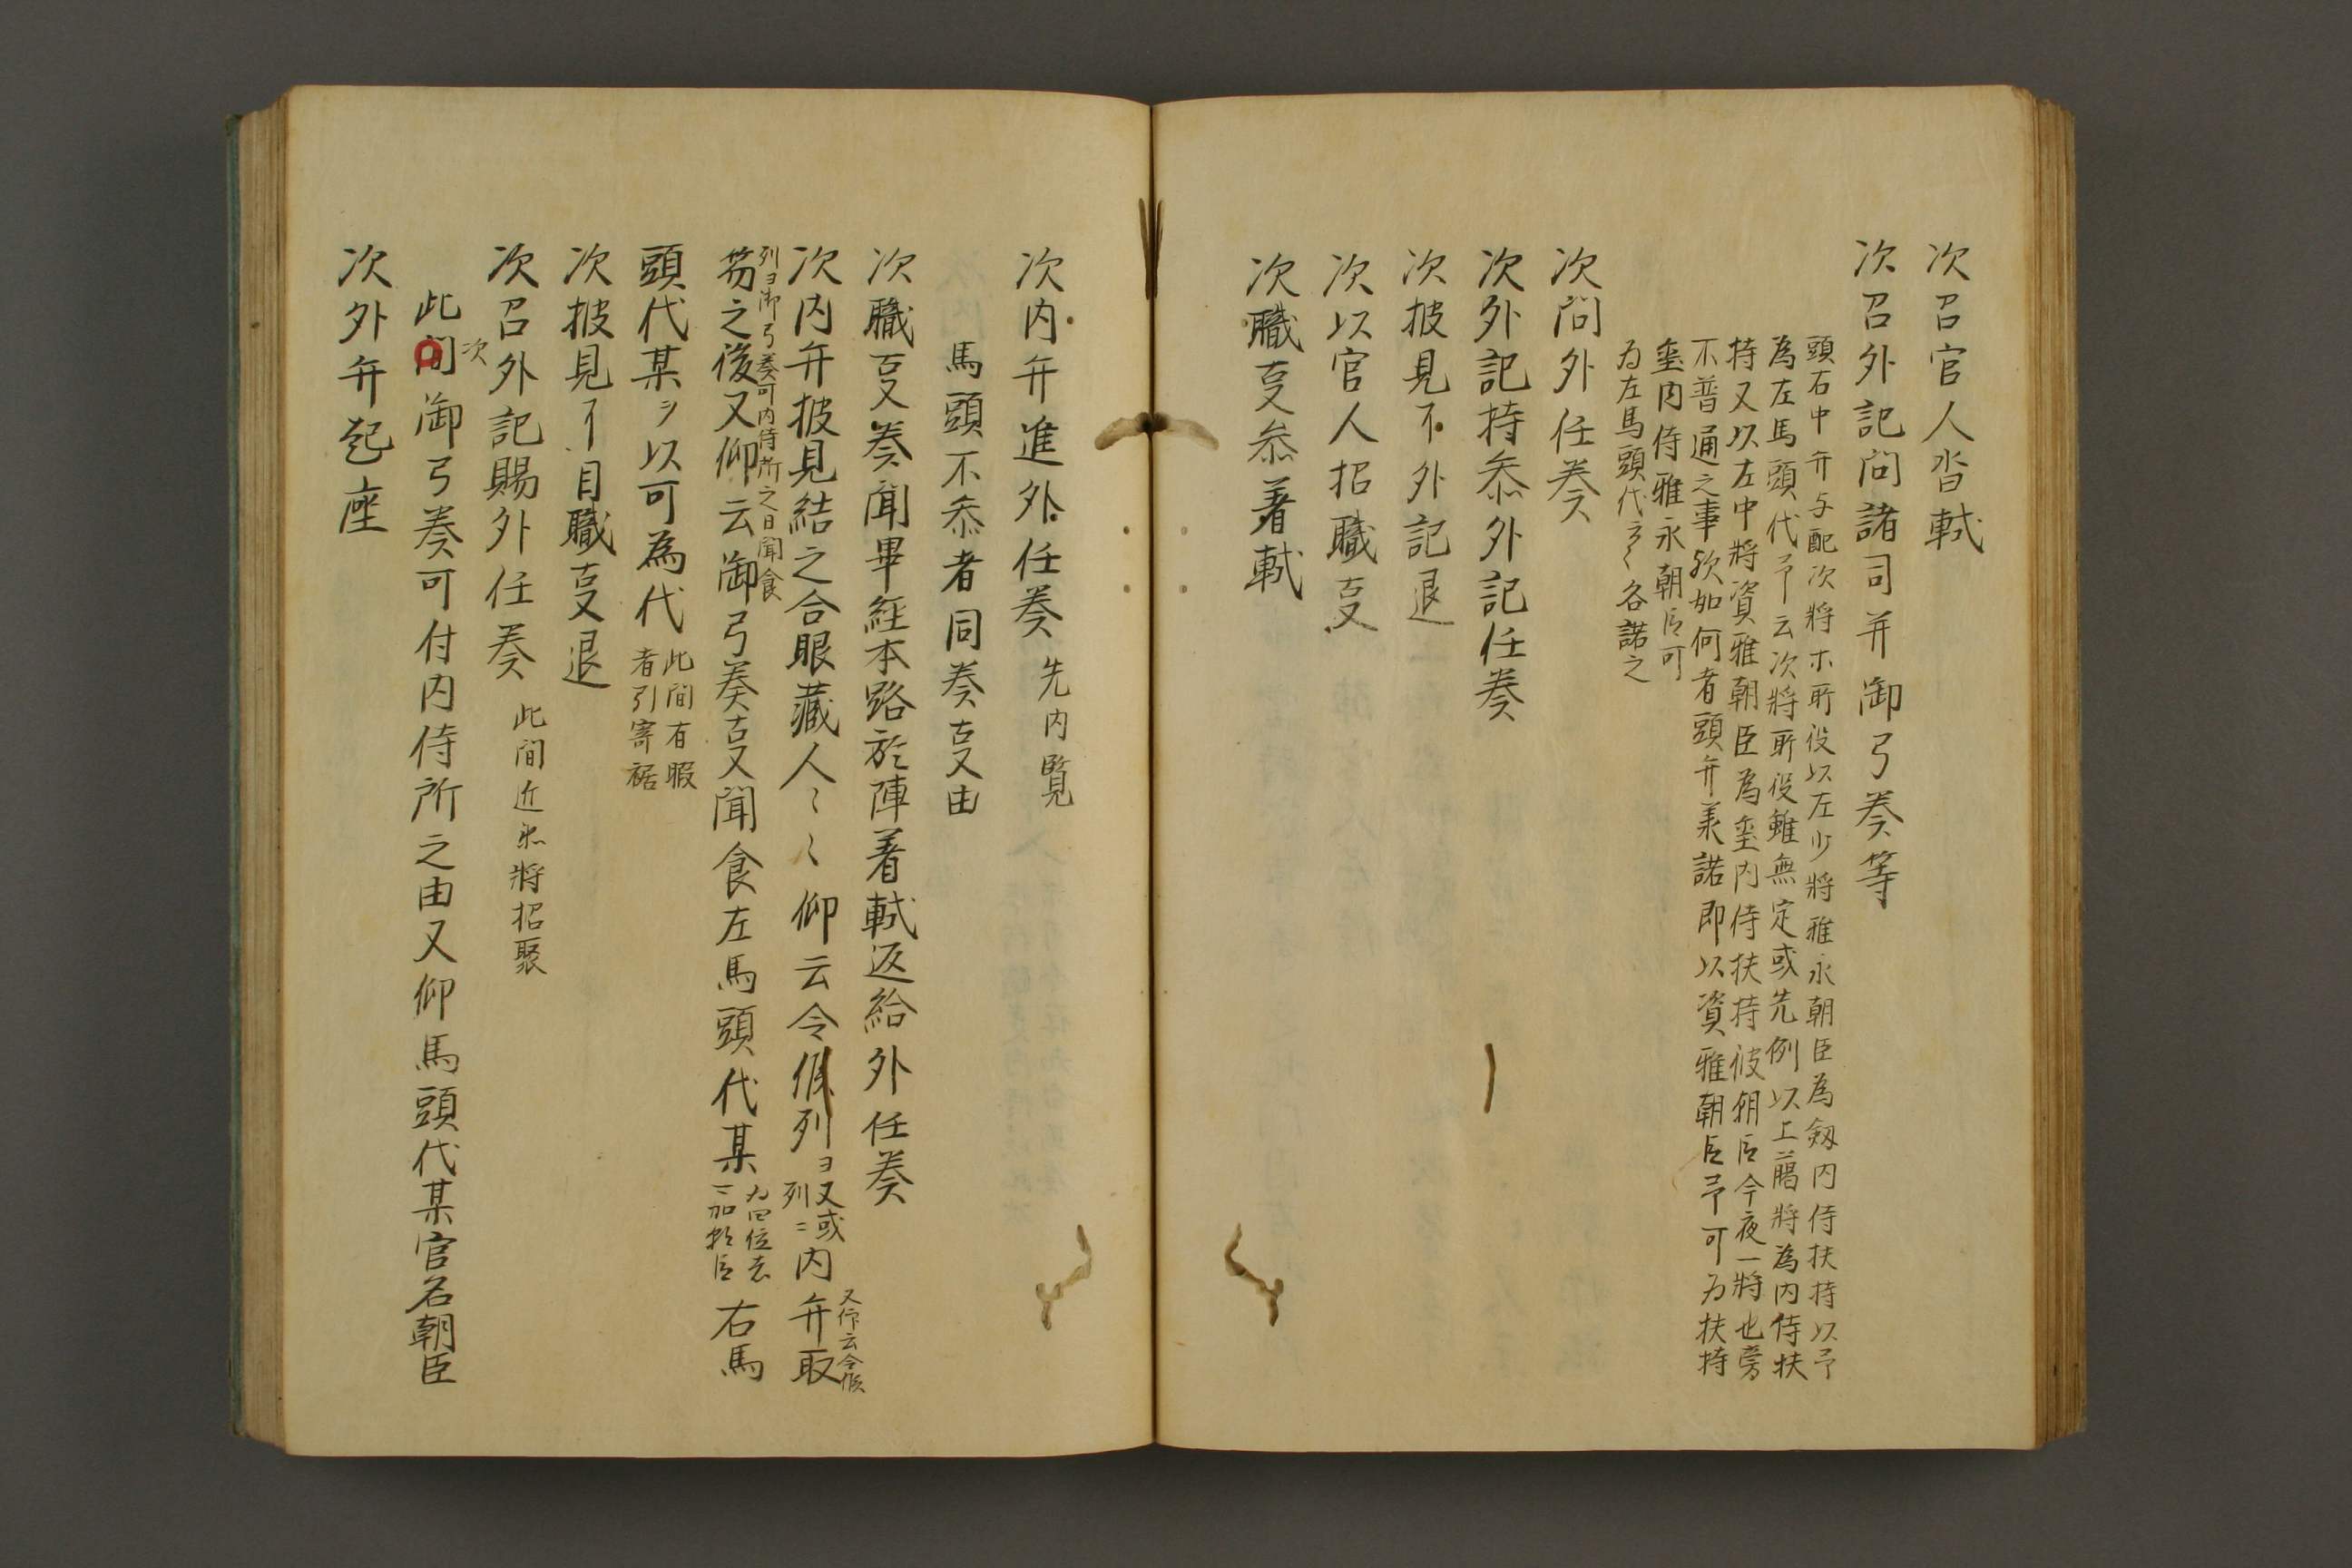 次召官人沓軾
次召外記問諸司并御弓奏等
頭右中弁与配次将ホ所役以左少将雅永朝臣為釼内侍扶持以予
為左馬頭代予云次将所役雖無定或先例以上臈将為内侍扶
持又以左中将資雅朝臣為璽内侍扶持彼朝臣今夜一将也旁
不普通之事欤如何者頭弁兼諾即以資雅朝臣予可为扶持
璽内侍雅永朝臣可
为左馬頭代云々各諾之
次問外任奏
次外記持叅外記任奏
次披見了外記退
次以官人招職叓
次職叓叅著軾
次内弁進外任奏 先内覧
馬頭不叅者同奏叓由
次職叓奏聞畢経本路於陣著軾返給外任奏
次内弁披見結之合眼蔵人々々仰云令候列ヨ 又或列ニ 内弁取 又仰云令候
列ヨ御弓奏可内侍所之日聞食
笏之後又仰云御弓奏叓聞食左馬頭代某 为四位者ニ加朝臣 右馬
頭代某ヲ以可為代 此間有暇者引寄裾
次披見了目職叓退
次召外記賜外任奏 此間近衛将招聚
次
此間御弓奏可付内侍所之由又仰馬頭代某官名朝臣
次外弁起座